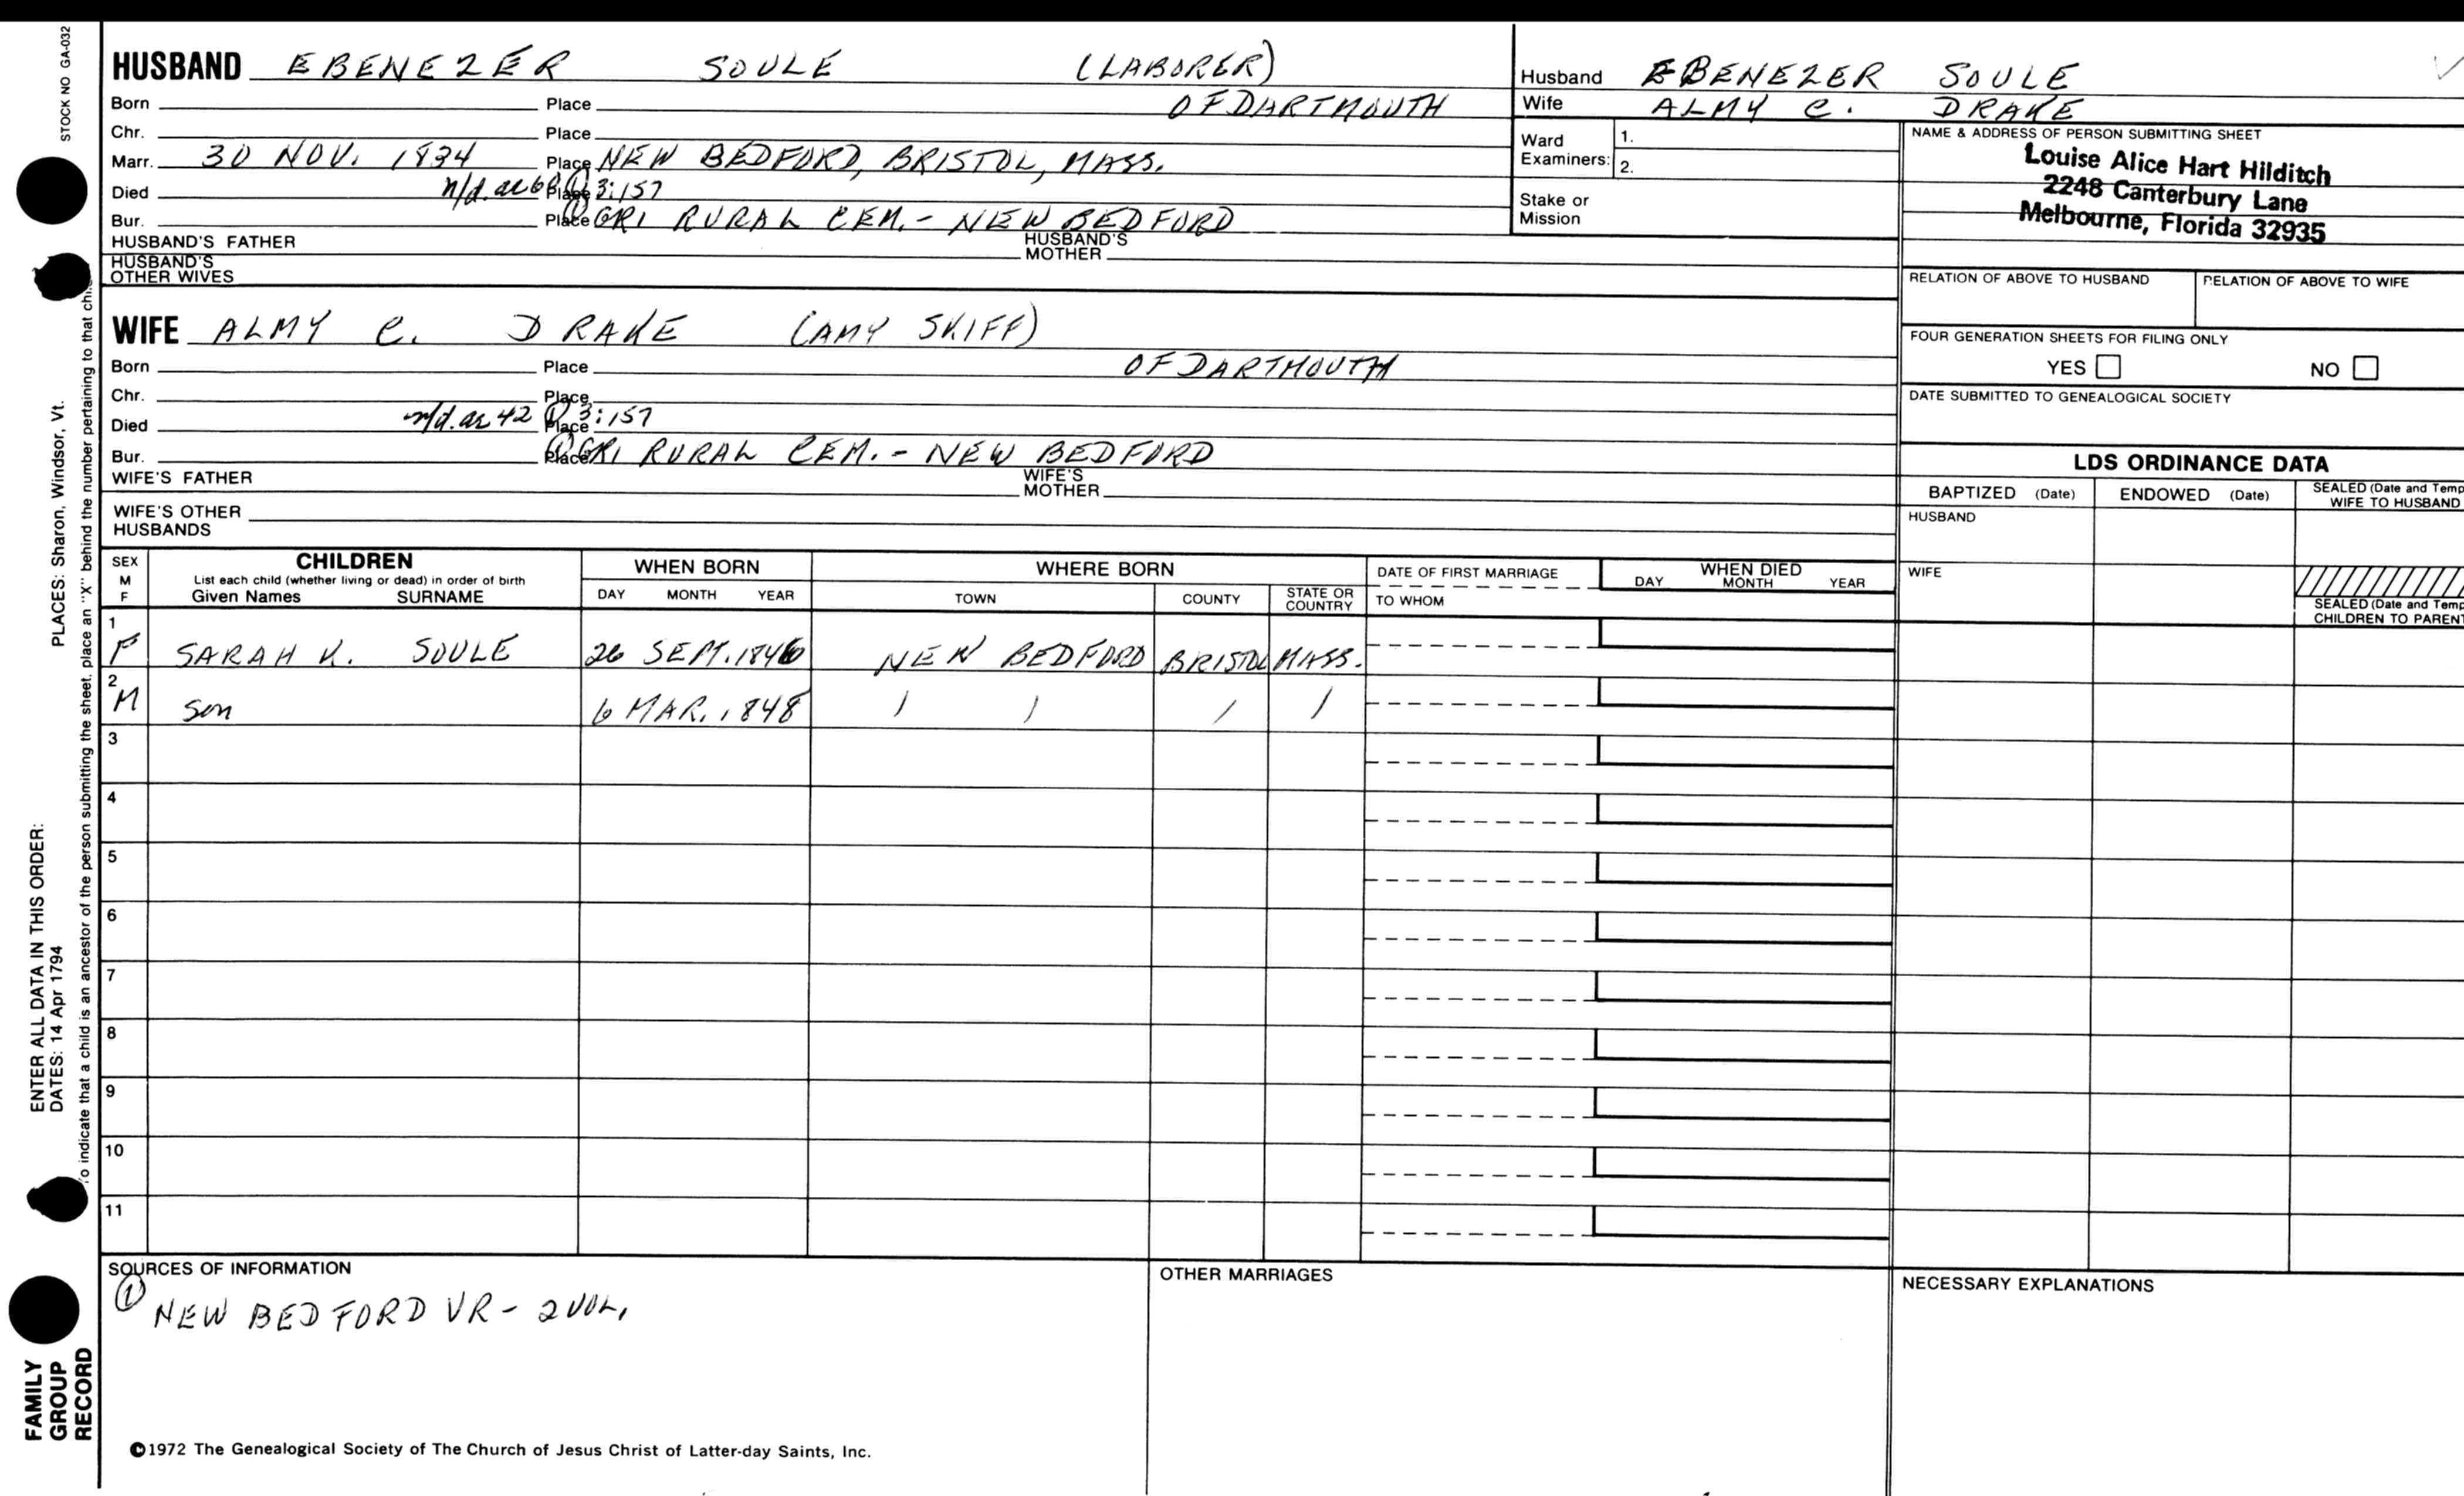 STOCK NO GA-032
HUSBAND EBENEZER SOULE (LABORER)
Born Place OF DARTMOUTH
Chr. Place
Marr. 30 NOV. 1834 Place NEW BEDFORD, BRISTOL, MASS.
Died n/d. ae 68 ① Place 3:157
Bur. Place ① GR1 RURAL CEM. - NEW BEDFORD
HUSBAND'S FATHER HUSBAND'S MOTHER
HUSBAND'S OTHER WIVES
WIFE ALMY C. DRAKE (AMY SKIFF)
Born Place OF DARTMOUTH
Chr. Place
Died n/d. ae 42 ① Place 3:157
Bur. Place ① GR1 RURAL CEM. - NEW BEDFORD
WIFE'S FATHER WIFE'S MOTHER
WIFE'S OTHER HUSBANDS
Husband EBENEZER SOULE
Wife ALMY C. DRAKE
Ward Examiners: 1.
2.
Stake or Mission
NAME & ADDRESS OF PERSON SUBMITTING SHEET
Louise Alice Hart Hilditch
2248 Canterbury Lane
Melbourne, Florida 32935
RELATION OF ABOVE TO HUSBAND RELATION OF ABOVE TO WIFE
FOUR GENERATION SHEETS FOR FILING ONLY
YES NO
DATE SUBMITTED TO GENEALOGICAL SOCIETY
LDS ORDINANCE DATA
BAPTIZED (Date) ENDOWED (Date) SEALED (Date and Temp
WIFE TO HUSBAND
HUSBAND
WIFE
SEALED (Date and Temp
CHILDREN TO PARENT
SEX M F
CHILDREN
List each child (whether living or dead) in order of birth
Given Names SURNAME
WHEN BORN
DAY MONTH YEAR
WHERE BORN
TOWN COUNTY STATE OR COUNTRY
DATE OF FIRST MARRIAGE
TO WHOM
WHEN DIED
DAY MONTH YEAR
1 F SARAH K. SOULE 26 SEPT. 1846 NEW BEDFORD BRISTOL MASS.
2 M Son 6 MAR. 1848 / / / /
3
4
5
6
7
8
9
10
11
SOURCES OF INFORMATION
① NEW BEDFORD VR - 2 VOL.
OTHER MARRIAGES
NECESSARY EXPLANATIONS
©1972 The Genealogical Society of The Church of Jesus Christ of Latter-day Saints, Inc.
ENTER ALL DATA IN THIS ORDER:
DATES: 14 Apr 1794 PLACES: Sharon, Windsor, Vt.
To indicate that a child is an ancestor of the person submitting the sheet, place an "X" behind the number pertaining to that chi
FAMILY
GROUP
RECORD